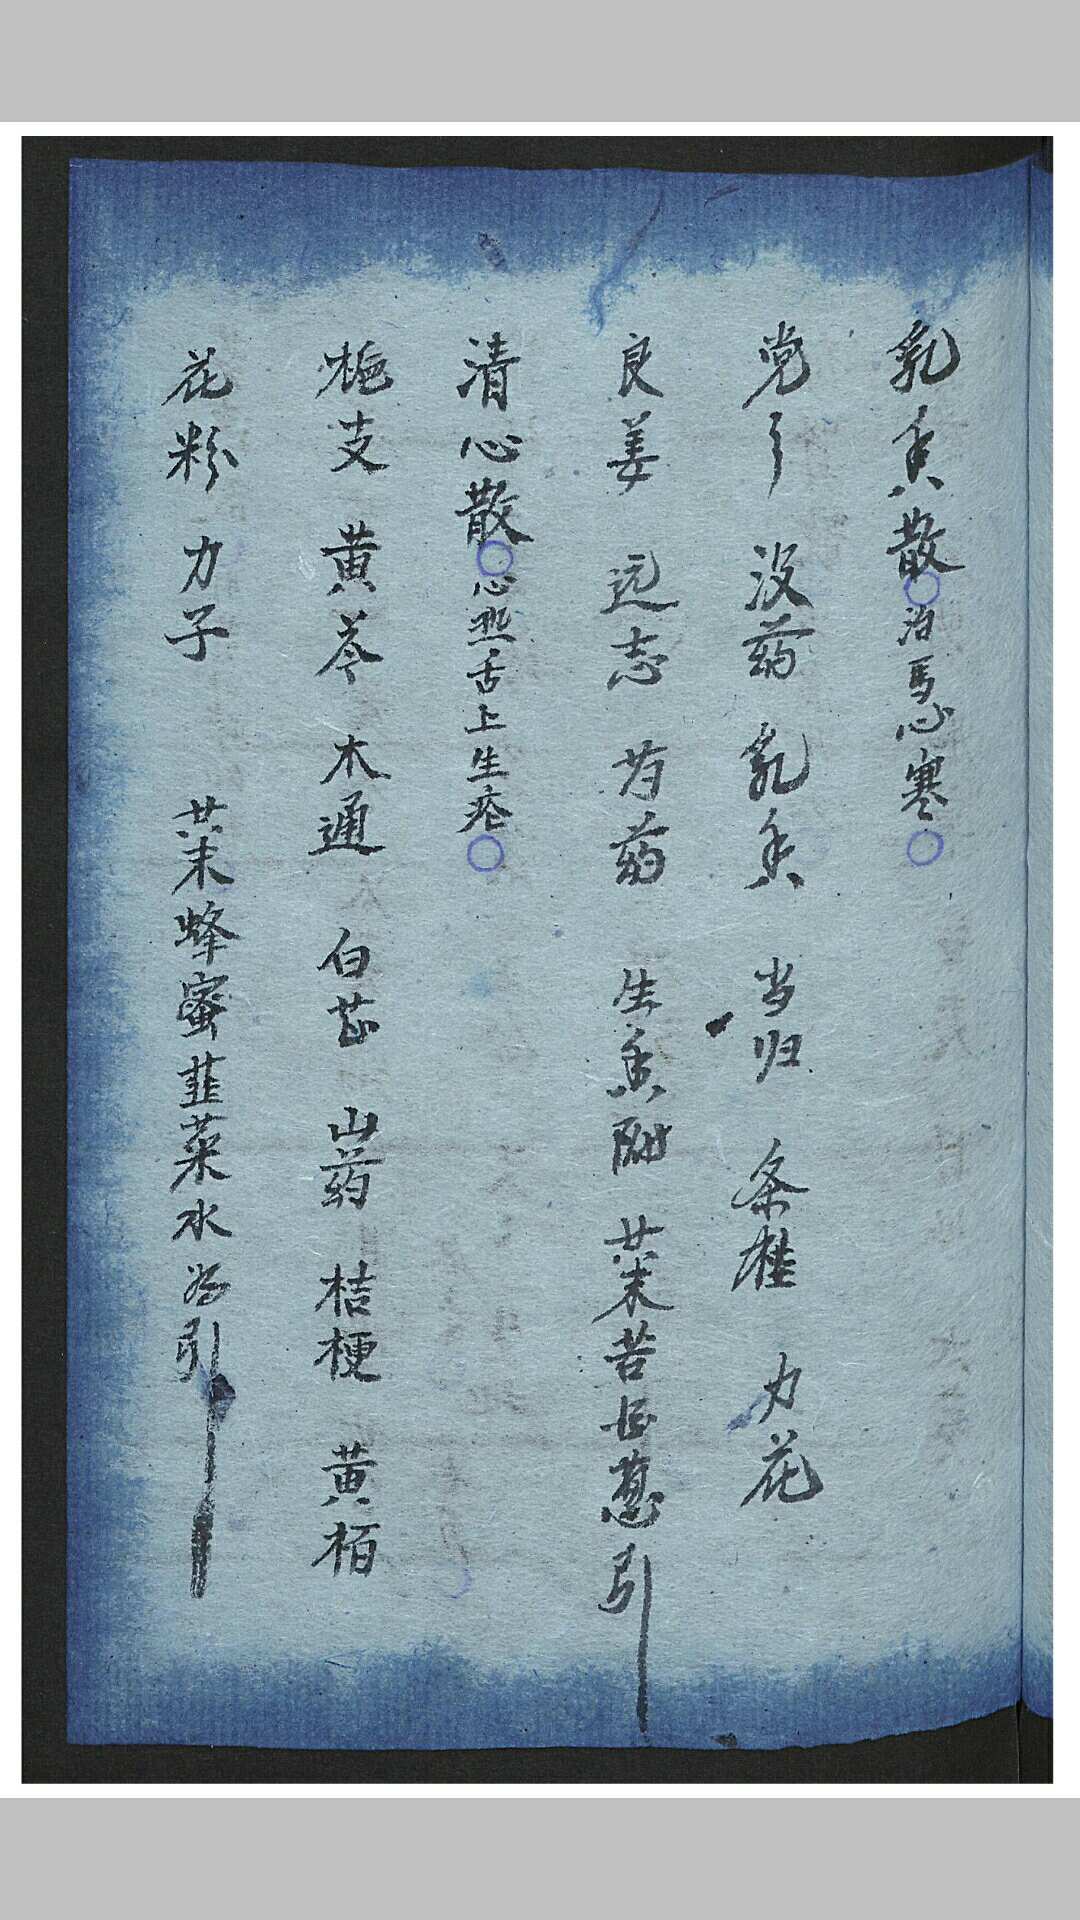 乳香散○治馬心寒○
党 没药 乳香 当归 条 力花
良姜 远志 芍药 生香附 共末苦 葱引
清心散○心热舌上生疮○
栀支 黄芩 木通 白芷 山药 桔梗 黄栢
花粉 力子 共末蜂蜜韭菜水为引